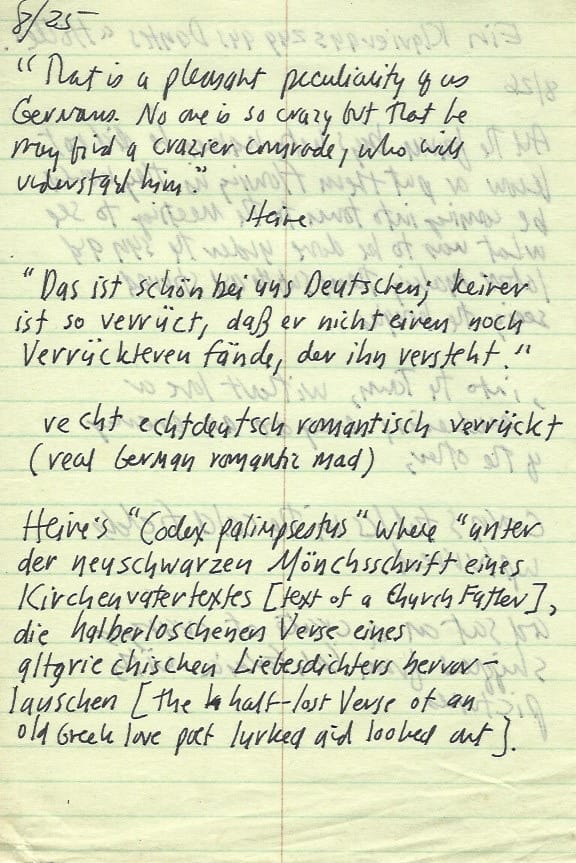 8/25-
"That is a pleasant peculiarity of us
Germans. No one is so crazy but that he
may find a crazier comrade, who will
understand him."
Heine
"Das ist schön bei uns Deutschen; keiner
ist so verrüct, daß er nicht einen noch
Verrückteren fände, der ihn versteht."
recht echtdeutsch romantisch verrückt
(real German romantic mad)
Heine's "Codex palimpsestus" where "unter
der neuschwarzen Mönchsschrift eines
Kirchenvatertextes [text of a Church Father],
die halberloschenen Verse eines
altgriechischen Liebesdichters hervor-
lauschen [the half-lost Verse of an
old Greek love poet lurked and looked out].